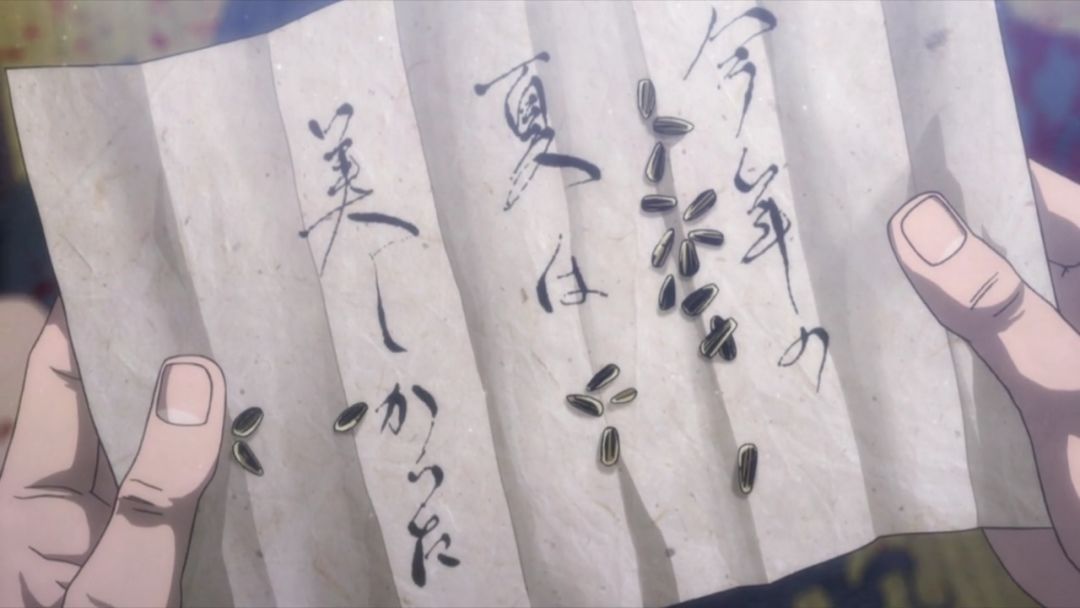 今年の
夏は
美しかった